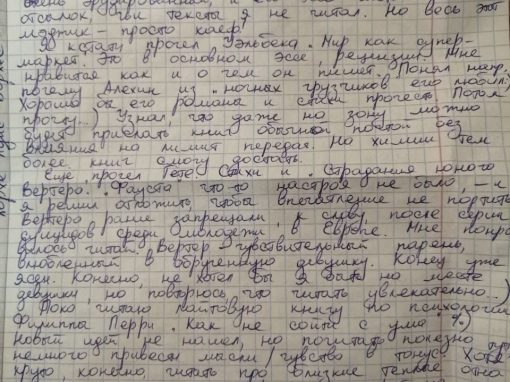 отсылок, чьи тексты я не читал. Но весь этот
маджик – просто кайф.
Я кстати прочел Уэльбека „Мир как супер-
маркет". Это в основном эссе, рецензии. Мне
нравится как и о чем он пишет. Понял напр.
почему Алехин из „ночных грузчиков" его любил)
Хорошо бы его романы и стихи прочесть. Потом
прочту...) Узнал, что даже на зону можно
будет присылать книги обычной почтой без
влияния на лимит передач. На химии тем
более книг смогу достать.
Еще прочел Гете: Стихи и „Страдания юного
Вертера". „Фауста" что-то настроя не было, – и
я решил отложить, чтобы впечатление не портить.
Вертера ранее запрещали, к слову, после серии
суицидов среди молодежи в Европе. Мне понра
вилось читать. Вертер – чувствительный парень,
влюбленный в обрученную девушку. Конец уже
ясен. Конечно, не хотел бы я быть на месте
девушки, но повторюсь, что читать увлекательно...)
Пока читаю лайтовую книгу по психологии
Филиппы Перри „Как не сойти с ума" %)
Новых идей не нашел, но почитать полезно
немного привести мысли/чувства в тонус. Хотя
круто, конечно, читать про близкие, теплые отно